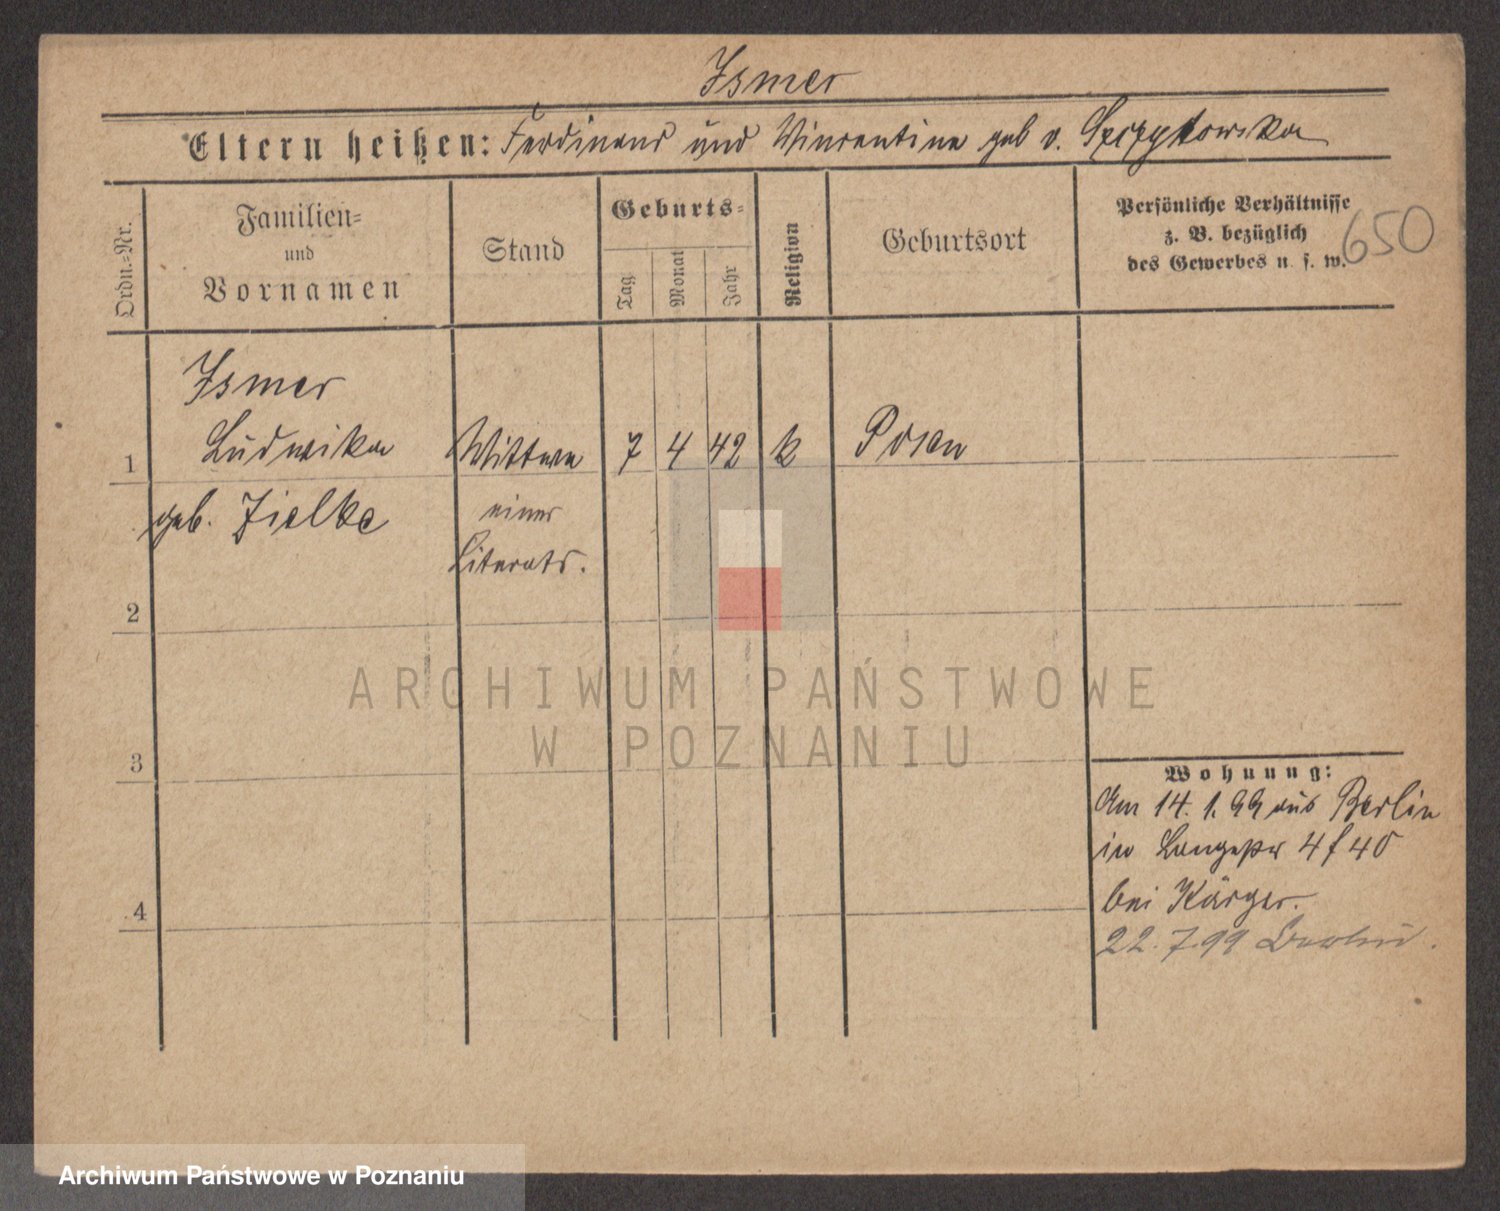 Ismer
Eltern heißen: Ferdinand und Vincentine geb v.
Ordn.-Nr.
Familien-
und
Vornamen
Stand
Geburts-
Tag
Monat
Jahr
Religion
Geburtsort
Persönliche Verhältnisse
z. B. bezüglich
des Gewerbes u. s. w.
650
Ismer
1 Ludwika Wittwe 7 4 42 k Posen
geb. Zielke eines
Literats.
2
3
4
Wohnung:
Am 14. 1. 99 aus Berlin
in Langestr 4 f 40
bei Kärger.
22. 7. 99 Berlin.
ARCHIWUM PAŃSTWOWE
W POZNANIU
Archiwum Państwowe w Poznaniu